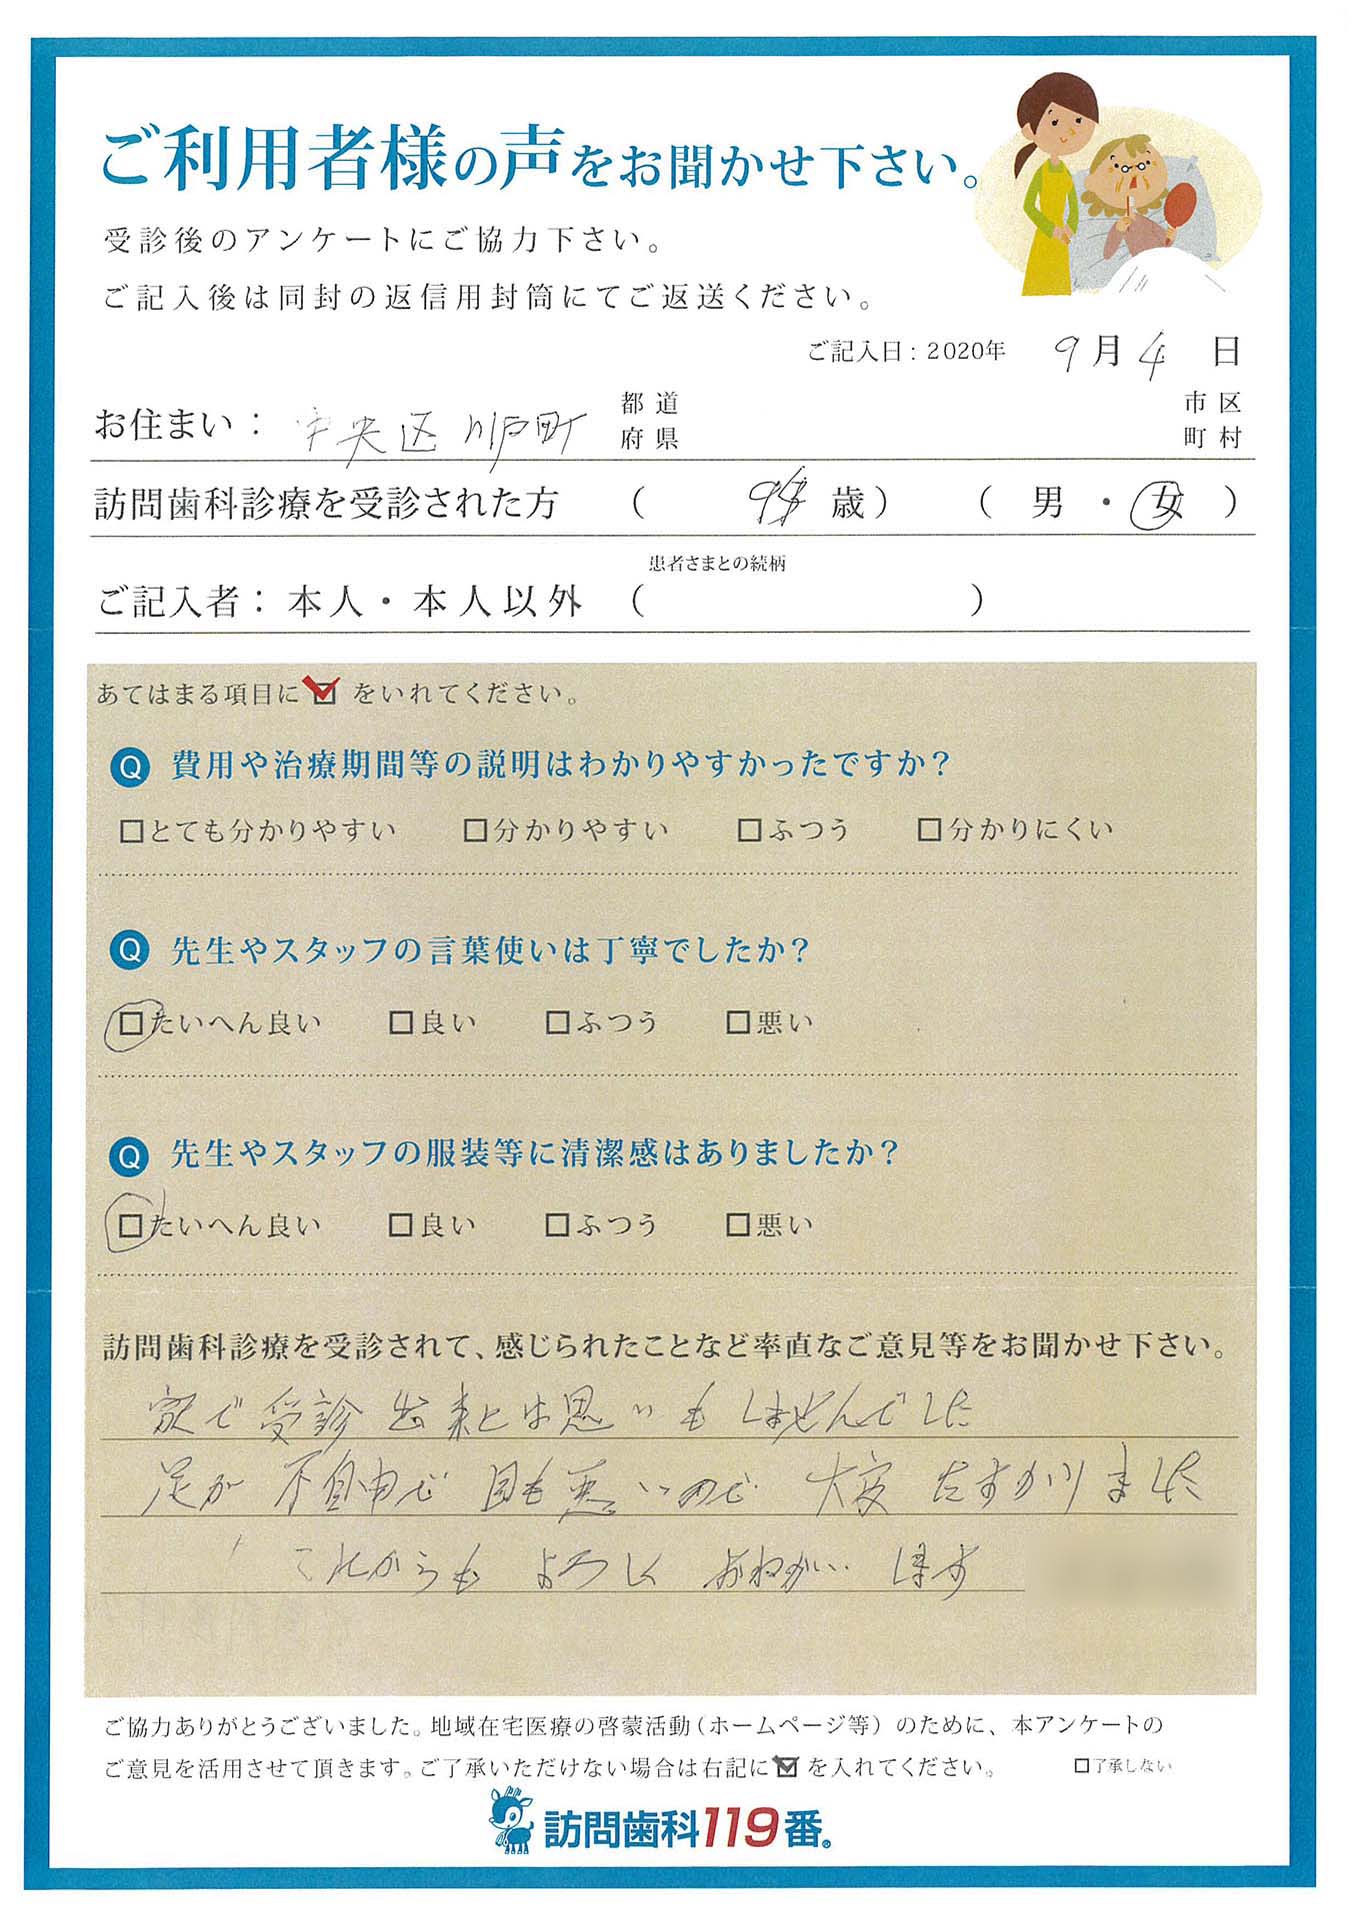 ご利用者様の声をお聞かせ下さい。
受診後のアンケートにご協力下さい。
ご記入後は同封の返信用封筒にてご返送ください。
ご記入日：2020年 9月4日
お住まい： 中央区 川戸町 都道府県 市区町村
訪問歯科診療を受診された方 （ 歳） （ 男 ・ 女 ）
患者さまとの続柄
ご記入者：本人・本人以外 （ ）
あてはまる項目に をいれてください。
Q 費用や治療期間等の説明はわかりやすかったですか？
□とても分かりやすい □分かりやすい □ふつう □分かりにくい
Q 先生やスタッフの言葉使いは丁寧でしたか？
□たいへん良い □良い □ふつう □悪い
Q 先生やスタッフの服装等に清潔感はありましたか？
□たいへん良い □良い □ふつう □悪い
訪問歯科診療を受診されて、感じられたことなど率直なご意見等をお聞かせ下さい。
家で受診出来とは思いもしませんでした
足が不自由で目も悪いので大変たすかりました
これからもよろしくおねがいします
ご協力ありがとうございました。地域在宅医療の啓蒙活動（ホームページ等）のために、本アンケートの
ご意見を活用させて頂きます。ご了承いただけない場合は右記に を入れてください。 □了承しない
訪問歯科119番®